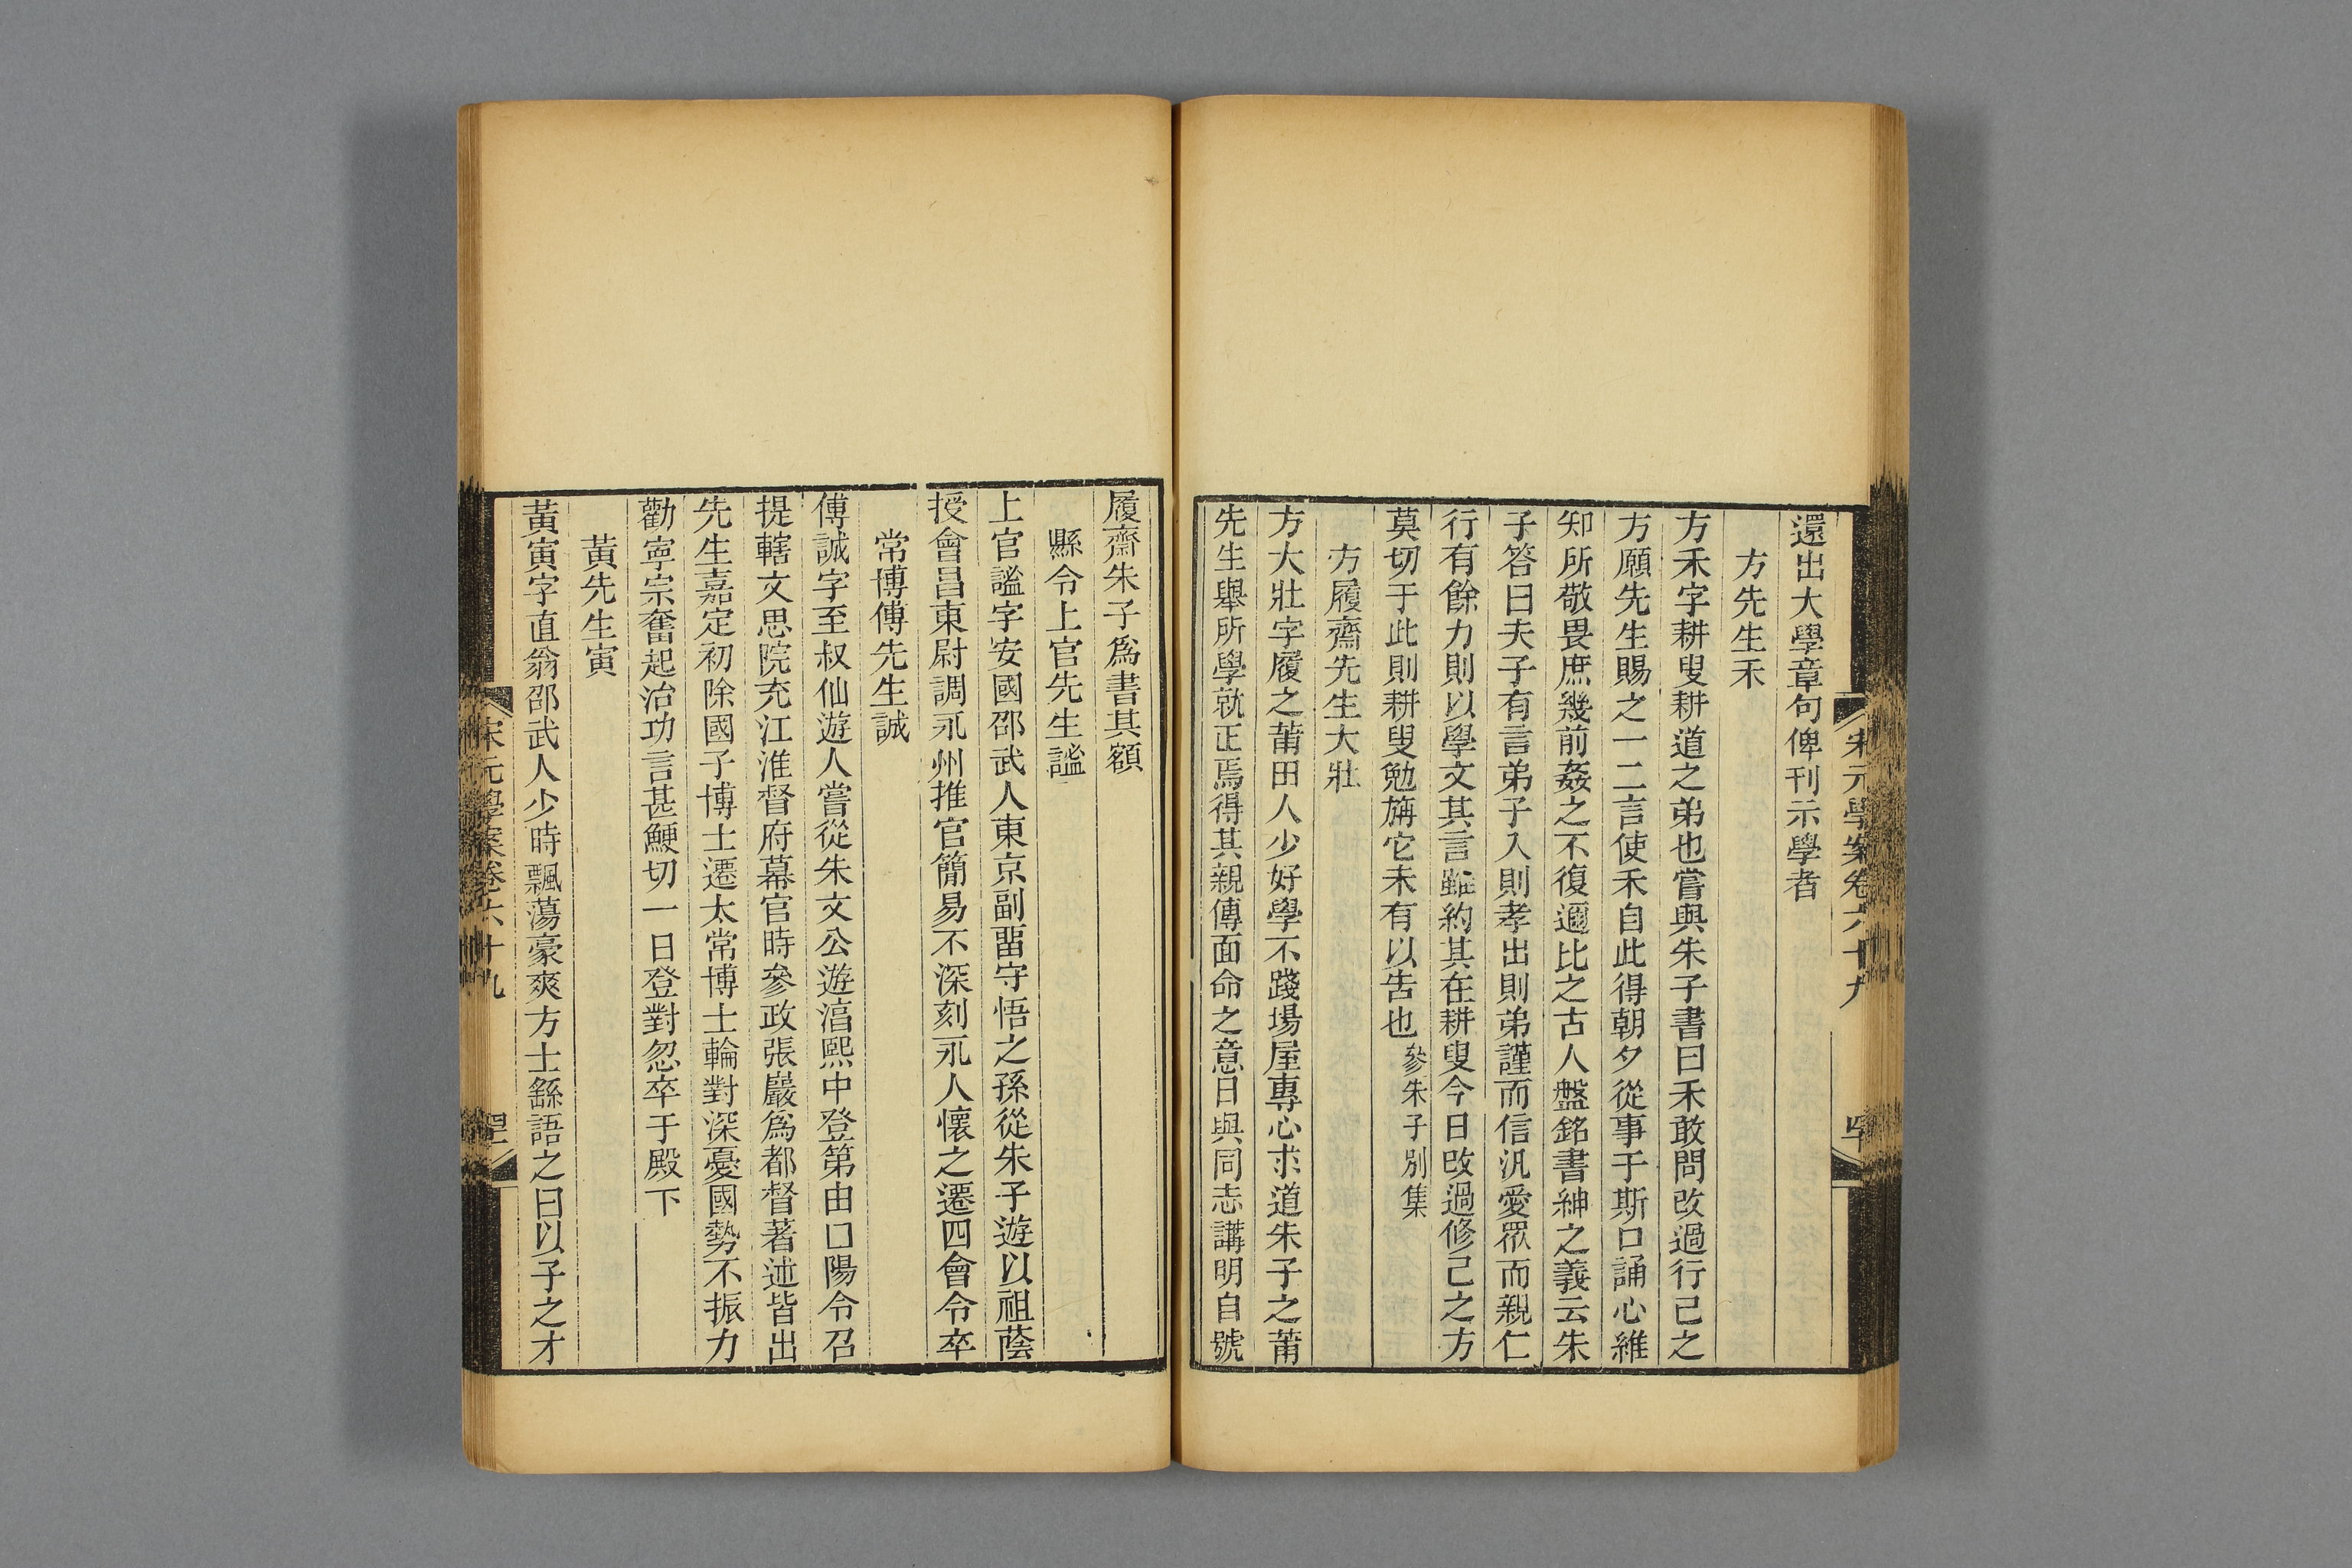 還出大學章句俾刊示學者
方先生禾
方禾字耕叟耕道之弟也嘗與朱子書曰禾敢問改過行己之
方願先生賜之一二言使禾自此得朝夕從事于斯口誦心維
知所敬畏庶幾前姦之不復邇比之古人盤銘書紳之義云朱
子答曰夫子有言弟子入則孝出則弟謹而信汎愛眾而親仁
行有餘力則以學文其言雖約其在耕叟今日改過修己之方
莫切于此則耕叟勉旃它未有以告也參朱子別集
方履齋先生大壯
方大壯字履之莆田人少好學不踐場屋專心求道朱子之莆
先生舉所學就正焉得其親傳面命之意日與同志講明自號
宋元學案卷六十九
履齋朱子爲書其額
縣令上官先生謐
上官謐字安國邵武人東京副畱守悟之孫從朱子遊以祖蔭
授會昌東尉調永州推官簡易不深刻永人懷之遷四會令卒
常博傅先生誠
傅誠字至叔仙遊人嘗從朱文公遊淳熙中登第由口陽令召
提轄文思院充江淮督府幕官時參政張巖爲都督著述皆出
先生嘉定初除國子博士遷太常博士輪對深憂國勢不振力
勸寧宗奮起治功言甚鯁切一日登對忽卒于殿下
黃先生寅
黃寅字直翁邵武人少時飄蕩豪爽方士繇語之曰以子之才
宋元學案卷六十九